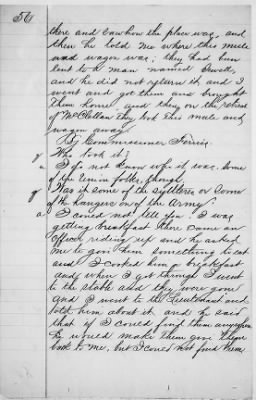 56
there and saw how the place was, and
then he told me where this mule
and wagon was; they had been
lent to a man named Sewell,
and he did not return it and I
went and got them and brought
them home and they on the retreat
of McClellan they took this mule and
wagon away
By Commissioner Ferris.
q Who took it?
a I do not know who it was. Some
of the Union folks, though.
q Was it some of the suttlers or some
of the hangers on of the Army
a I could not tell you. I was
getting breakfast there came an
officer riding up and he asked
me to give him something to eat
and I cooked him a breakfast
and when I got through I went
to the stable and they were gone
and I went to the Lieutenant and
told him about it and he said
that if I could find them anywhere
he would make them give them
back to me, but I could not find them